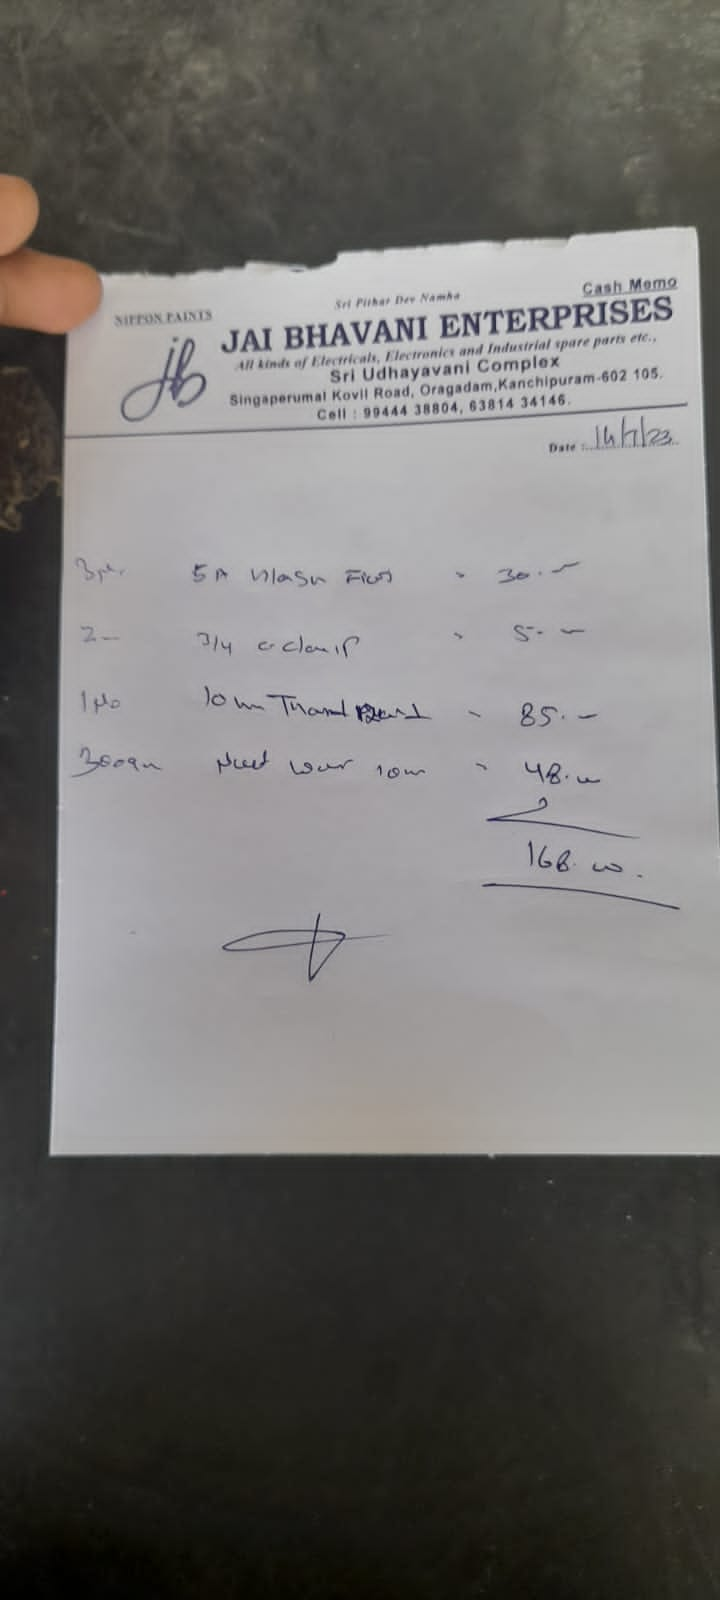 Sri Pithar Dev Namha
Cash Memo
NIPPON PAINTS
jb
JAI BHAVANI ENTERPRISES
All kinds of Electricals, Electronics and Industrial spare parts etc.,
Sri Udhayavani Complex
Singaperumal Kovil Road, Oragadam,Kanchipuram-602 105.
Cell : 99444 38804, 63814 34146.
Date : 14/7/23
5A 30.-
2 3/4 c-clamp 5.-
1 No 10 85.-
300gm 10m 48.00
168.00